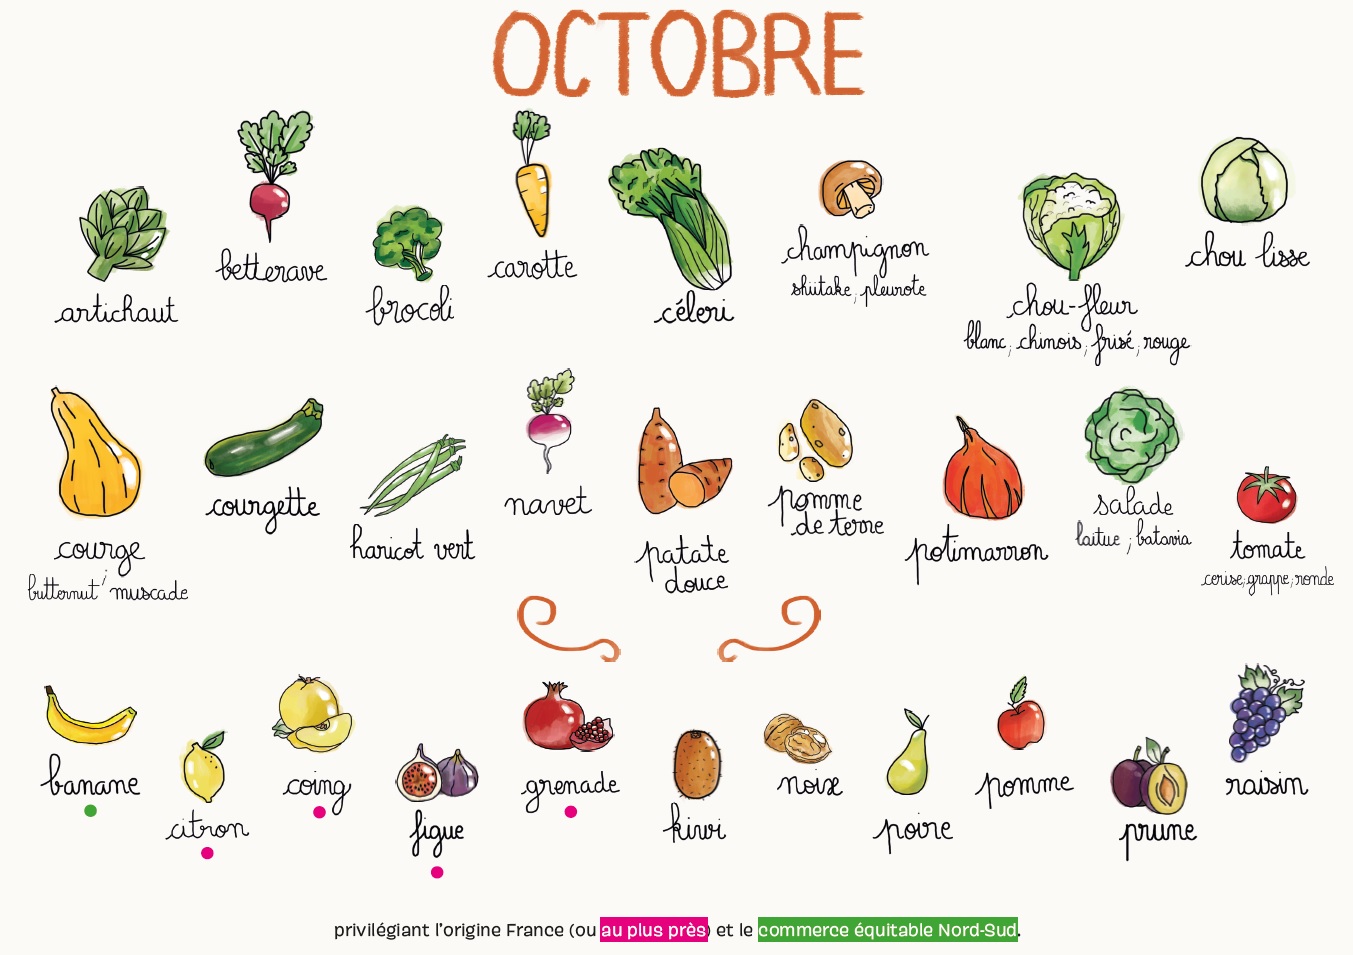 OCTOBRE
artichaut
betterave
brocoli
carotte
céleri
champignon
shiitake, pleurote
chou-fleur
blanc, chinois, frisé, rouge
chou lisse
courge
butternut, muscade
courgette
haricot vert
navet
patate
douce
pomme
de terre
potimarron
salade
laitue, batavia
tomate
cerise, grappe, ronde
banane
citron
coing
figue
grenade
kiwi
noix
poire
pomme
prune
raisin
privilégiant l'origine France (ou au plus près) et le commerce équitable Nord-Sud.